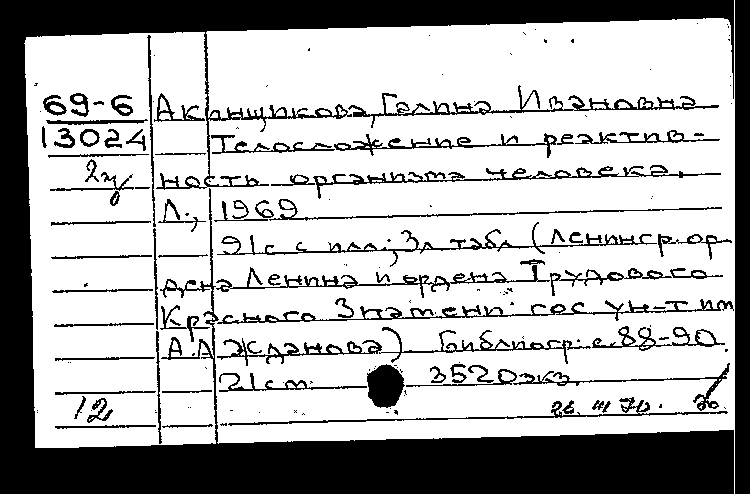 69-6
13024
Акинщикова, Галина Ивановна
Телосложение и реактив-
ность организма человека.
Л., 1969
91 с с илл; 3 л табл (Ленингр. ор-
дена Ленина и ордена Трудового
Красного Знамени гос ун-т им
А.А Жданова) Библиогр: с. 88-90.
21 см. 3520 экз.
12 26. III 70.